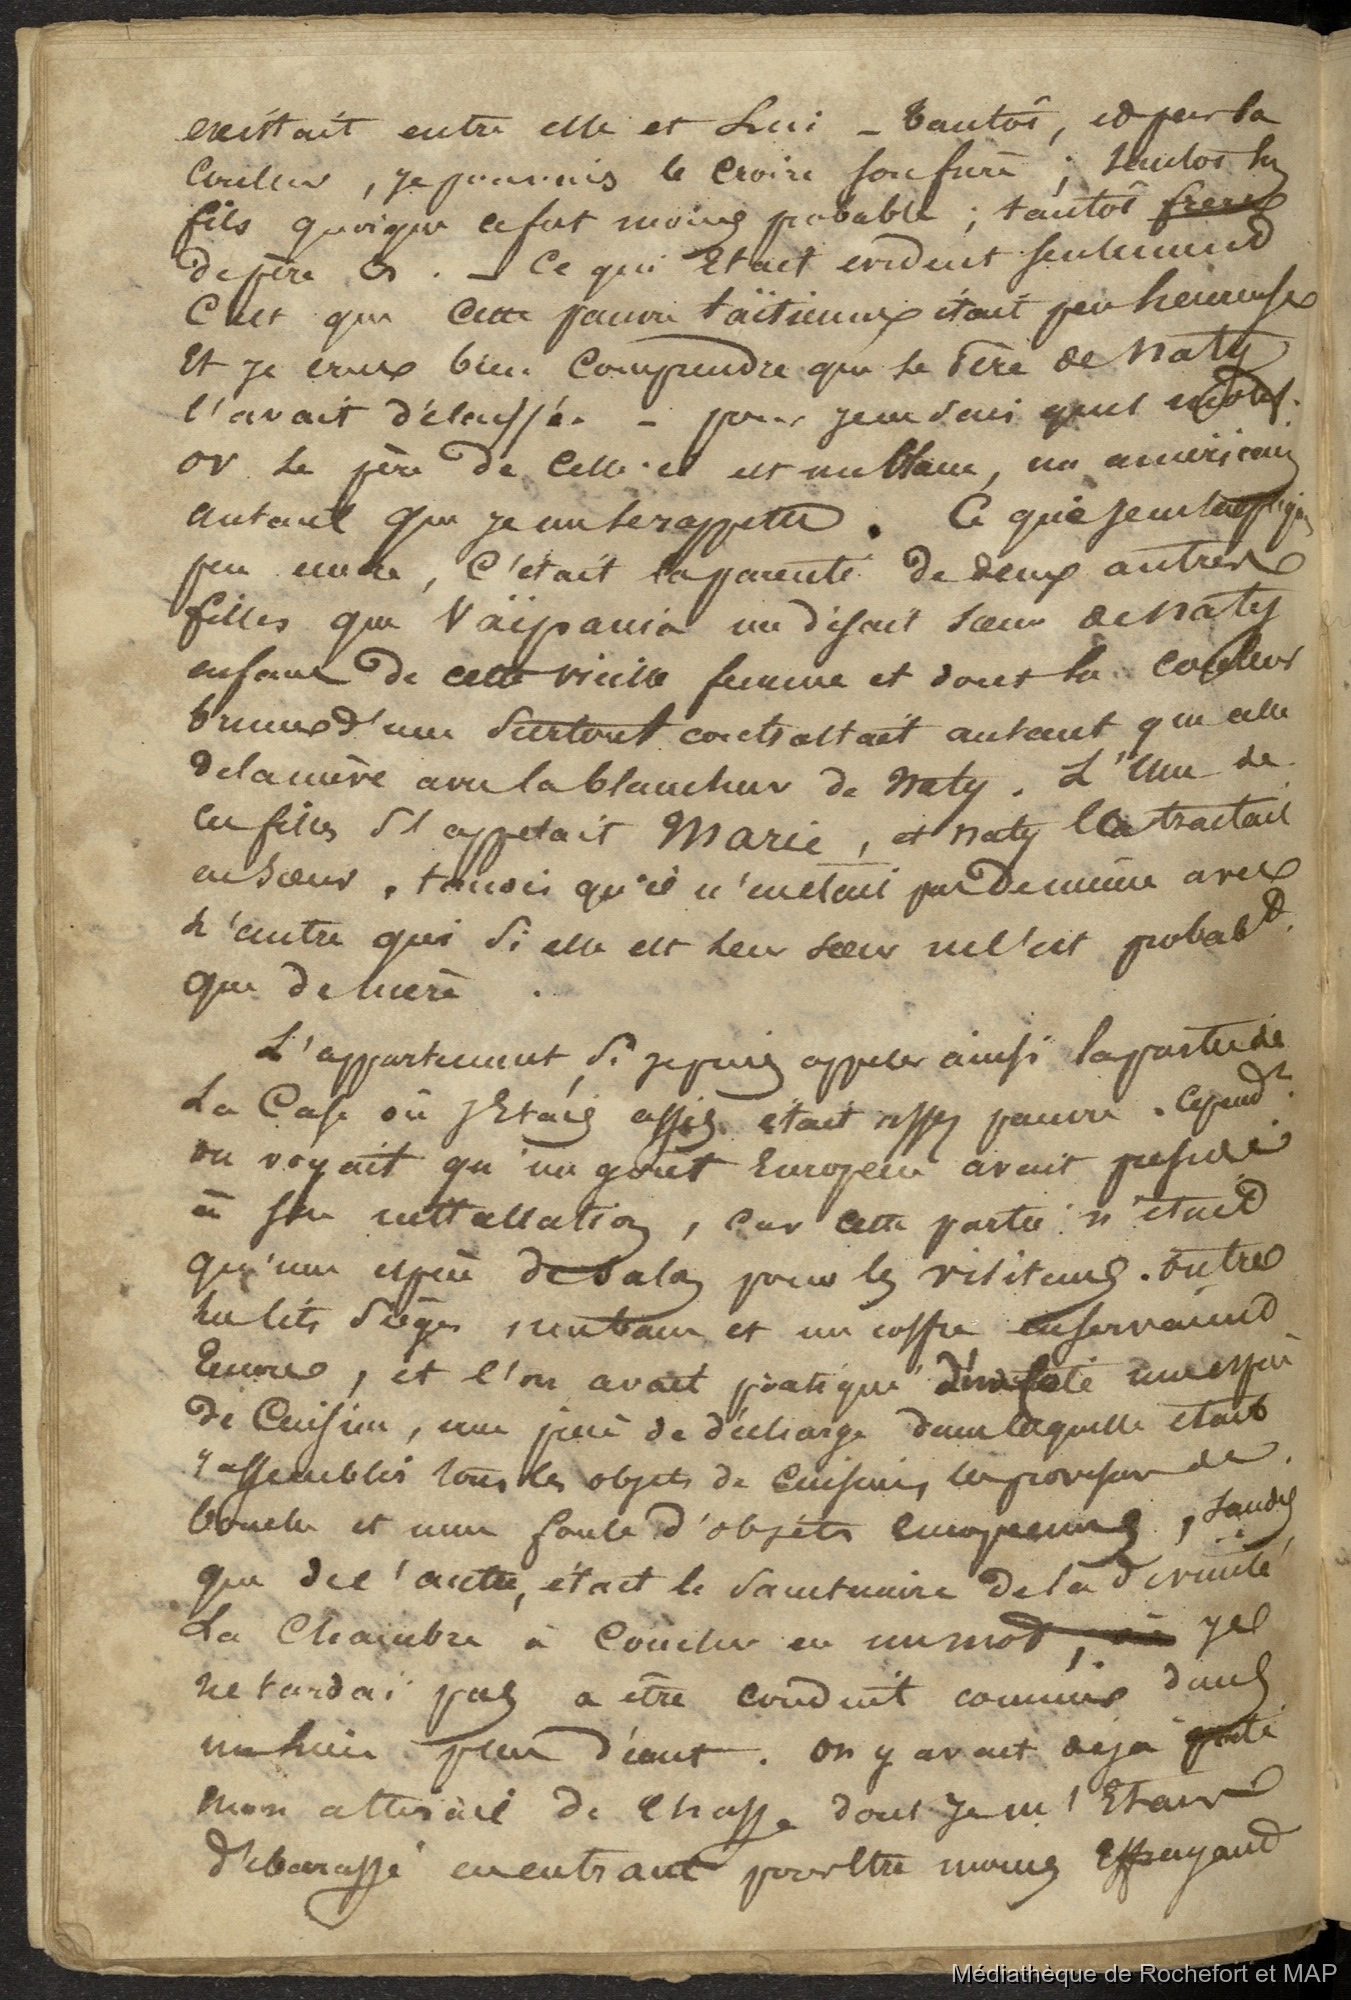 existait entre elle et lui _ tantôt, et par la
couleur, je pouvais le croire son frère ; tantôt le
fils quoique ce fut moins probable ; tantôt frere
de père &. _ Ce qui Etait evident seulement
C'est que cette pauvre taïtienne était peu heureuse
Et je crus bien comprendre que le Père de Naty
l'avait délaissée - pour je ne sais quel motif.
or le père de celle-ci est un blanc, un américain
autant que je me le rappelle. Ce que je m'expliquai
peu encore, c'était la parenté de deux autres
filles que Vaïpania me disait sœur de Naty
enfant de cette vieille femme et dont la couleur
brune d'une surtout contrastait autant que celle
de la mère avec la blancheur de Naty. L'Une de
ces filles s'appelait Marie, et Naty la traitait
en sœur, tandis qu'il n'en était pas de même avec
l'autre qui si elle est leur sœur ne l'est probabt.
que de mère.
L'appartement, si je puis appeler ainsi la partie de
La Case où j'Etais assis était assez pauvre. Cependt.
on voyait qu'un goût Européen avait présidé
à son installation, car cette partie n'était
qu'une espèce de salon pour les visiteurs. outre
les lits sièges, un banc et un coffre en servaient
Encore, et l'on avait pratiqué d'un coté une espèce
de Cuisine, une pièce de décharge dans laquelle étaient
rassemblés tous les objets de cuisine, les provisions de
bouche et une foule d'objets Européens, tandis
que de l'autre, était le sanctuaire de la divinité
La Chambre à Coucher en un mot, où je
ne tardai pas a être conduit comme dans
un lieu plus décent. On y avait déjà porté
mon attirail de chasse dont je m'Etais
débarassé en entrant pour être moins Effrayant